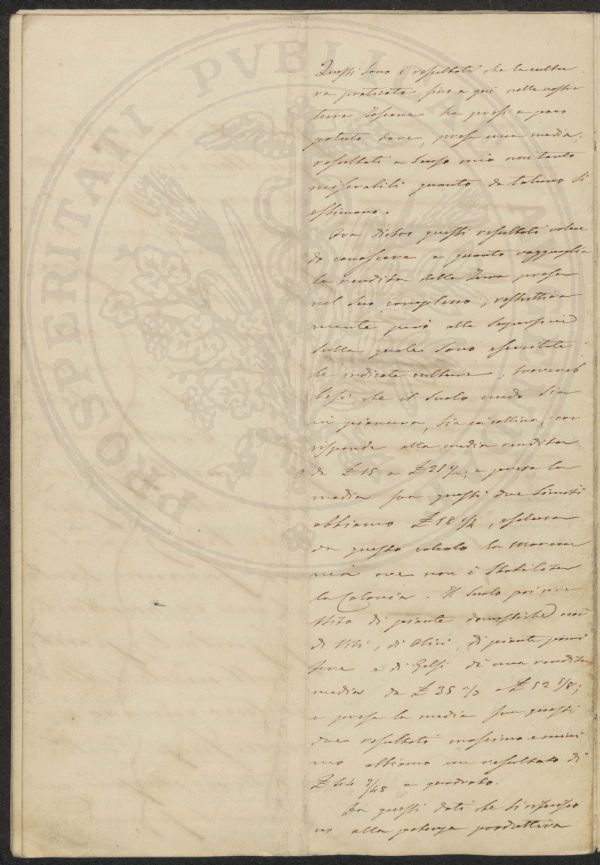 Questi sono i resultati che la cultu-
ra praticata fino a qui nella nostra
terra Toscana ha presso a poco
potuto dare, presa una media;
resultati a senso mio non tanto
miserabili quanto da taluno si
estimano.
Ora dietro questi resultati volen
do conoscere a quanto ragguaglia
la rendita della Terra presa
nel suo complesso, respettiva
mente però alla superficie
sulla quale sono esercitate
le indicate culture, trovereb
besi che il suolo nudo sia
in pianura, sia in collina, cor
risponde alla media rendita
da £ 15 a £ 21 ½; e presa la
media fra questi due limiti
abbiamo £ 18 ¼, esclusa
da questo calcolo la marem
ma ove non è stabilita
la Colonia. Il suolo poi ve
stito di piante domestiche cioè
di Viti, di Olivi, di piante pomi
fere e di Gelsi dà una rendita
media da £ 35 ⅔ a £ 52 ⅝;
e presa la media fra questi
due resultati massimo e mini
mo abbiamo un resultato di
£ 44 7/48 a quadrato.
Da questi dati che si
no alla potenza produttiva
PROSPERITATI PVBLICAE